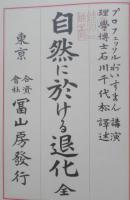 プロフェッソルわいすまん講演
理學博士石川千代松譯述
自然に於ける退化 全
東京
合資會社
冨山房發行